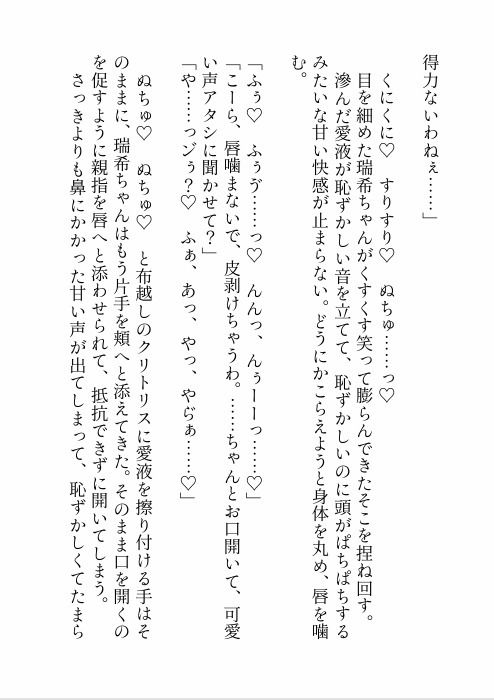 得力ないわねぇ……」
くにくに♡　すりすり♡　ぬちゅ……っ♡
目を細めた瑞希ちゃんがくすくす笑って膨らんできたそこを捏ね回す。
滲んだ愛液が恥ずかしい音を立てて、恥ずかしいのに頭がぱちぱちする
みたいな甘い快感が止まらない。どうにかこらえようと身体を丸め、唇を噛
む。
「ふぅ♡　ふぅゔ……っ♡　んんっ、んぅーーっ……♡」
「こーら、唇噛まないで、皮剥けちゃうわ。……ちゃんとお口開いて、可愛
い声アタシに聞かせて？」
「や……っゞぅ？♡　ふぁ、あっ、やっ、やら゙ぁ……♡」
ぬちゅ♡　ぬちゅ♡　と布越しのクリトリスに愛液を擦り付ける手はそ
のままに、瑞希ちゃんはもう片手を頬へと添えてきた。そのまま口を開くの
を促すように親指を唇へと添わせられて、抵抗できずに開いてしまう。
さっきよりも鼻にかかった甘い声が出てしまって、恥ずかしくてたまら